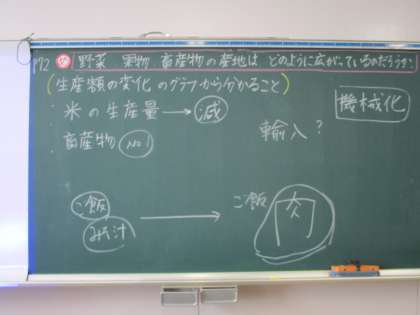 P72 野菜 果物 畜産物の産地は どのように広がっているのだろうか?
(生産額の変化のグラフから分かること)
機械化
米の生産量 → 減
輸入?
畜産物 No1
ご飯 みそ汁 → ご飯 肉